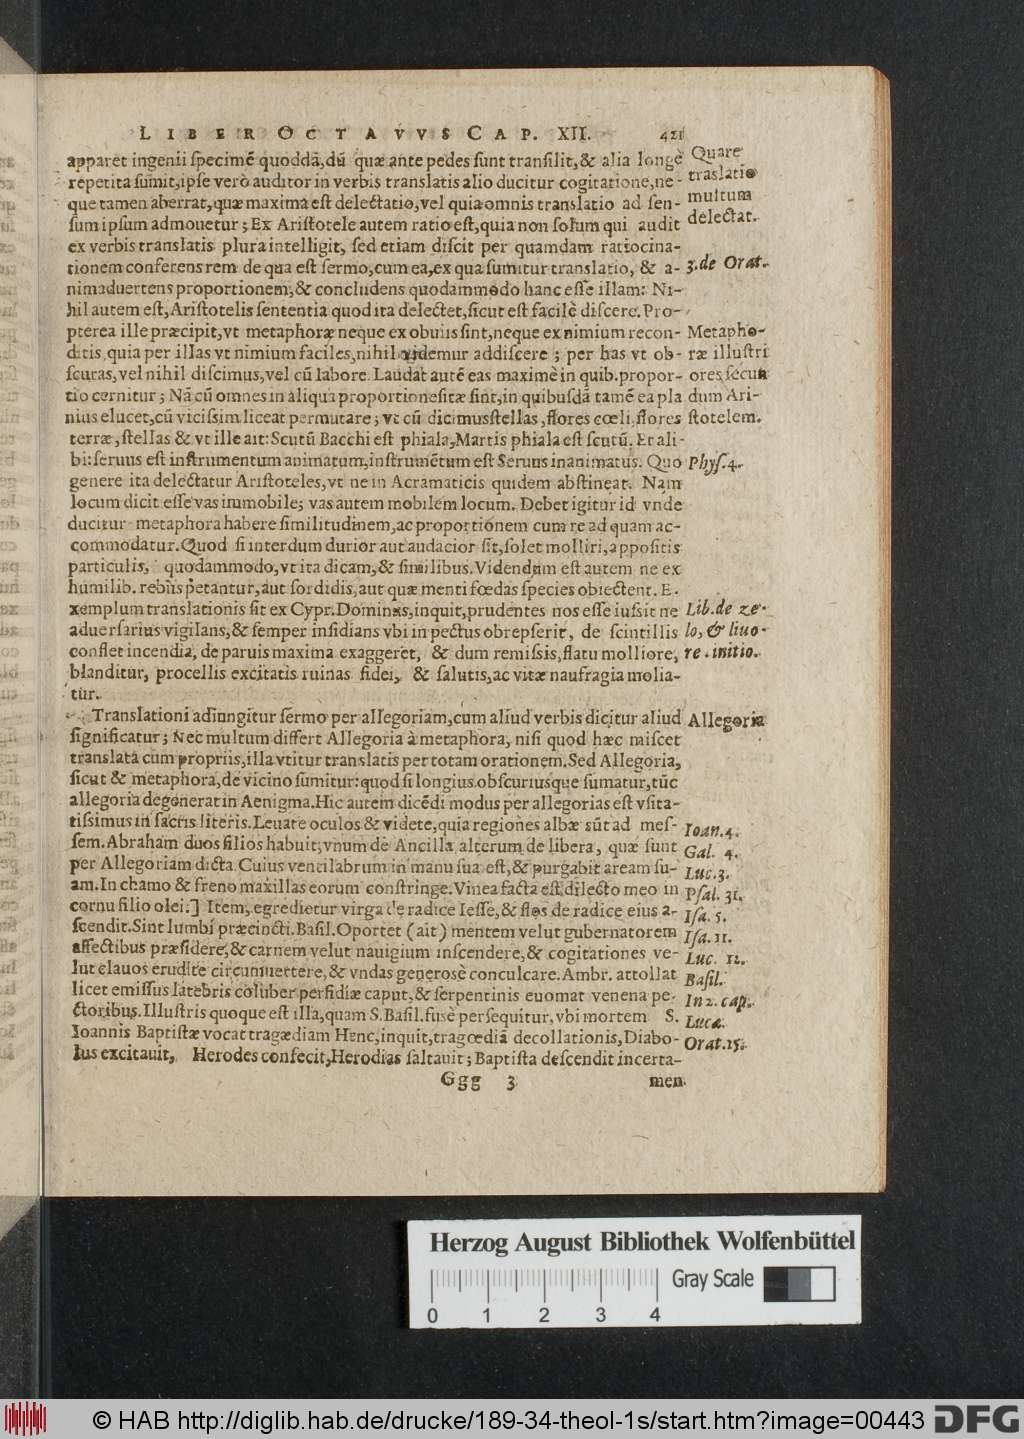 LIBER OCTAVVS CAP. XII. 421
apparet ingenii ſpecimē quoddā, dū quæ ante pedes ſunt tranſilit, & alia longè
repetita ſumit, ipſe verò auditor in verbis translatis alio ducitur cogitatione, ne-
que tamen aberrat, quæ maxima eſt delectatio, vel quia omnis translatio ad ſen-
ſum ipſum admouetur; Ex Ariſtotele autem ratio eſt, quia non ſolum qui audit
ex verbis translatis plura intelligit, ſed etiam diſcit per quamdam ratiocina-
tionem conferens rem de qua eſt ſermo, cum ea, ex qua ſumitur translatio, & a-
nimaduertens proportionem, & concludens quodammodo hanc eſſe illam: Ni-
hil autem eſt, Ariſtotelis ſententia quod ita delectet, ſicut eſt facilè diſcere. Pro-
pterea ille præcipit, vt metaphoræ neque ex obuiis ſint, neque ex nimium recon-
ditis, quia per illas vt nimium faciles, nihil videmur addiſcere; per has vt ob-
ſcuras, vel nihil diſcimus, vel cū labore. Laudat autē eas maximè in quib. propor-
tio cernitur; Nā cū omnes in aliqua proportione ſitæ ſint, in quibuſdā tamē ea pla
nius elucet, cū viciſsim liceat permutare; vt cū dicimus ſtellas, flores cœli, flores
terræ, ſtellas & vt ille ait: Scutū Bacchi eſt phiala, Martis phiala eſt ſcutū. Et ali-
bi: ſeruus eſt inſtrumentum animatum, inſtrumētum eſt Seruus inanimatus. Quo
genere ita delectatur Ariſtoteles, vt ne in Acramaticis quidem abſtineat. Nam
locum dicit eſſe vas immobile; vas autem mobilem locum. Debet igitur id vnde
ducitur metaphora habere ſimilitudinem, ac proportionem cum re ad quam ac-
commodatur. Quod ſi interdum durior aut audacior ſit, ſolet molliri, appoſitis
particulis, quodammodo, vt ita dicam, & ſimilibus. Videndum eſt autem ne ex
humilib. rebus petantur, aut ſordidis, aut quæ menti fœdas ſpecies obiectent. E-
xemplum translationis ſit ex Cypr. Dominus, inquit, prudentes nos eſſe iuſsit ne
aduerſarius vigilans, & ſemper inſidians vbi in pectus obrepſerit, de ſcintillis
conflet incendia, de paruis maxima exaggeret, & dum remiſsis, flatu molliore,
blanditur, procellis excitatis ruinas fidei, & ſalutis, ac vitæ naufragia molia-
tur.
Translationi adiungitur ſermo per allegoriam, cum aliud verbis dicitur aliud
ſignificatur; Nec multum differt Allegoria à metaphora, niſi quod hæc miſcet
translata cum propriis, illa vtitur translatis per totam orationem. Sed Allegoria,
ſicut & metaphora, de vicino ſumitur: quod ſi longius obſcuriusque ſumatur, tūc
allegoria degenerat in Aenigma. Hic autem dicēdi modus per allegorias eſt vſita-
tiſsimus in ſacris literis. Leuate oculos & videte, quia regiones albæ sūt ad meſ-
ſem. Abraham duos filios habuit, vnum de Ancilla alterum de libera, quæ ſunt
per Allegoriam dicta. Cuius ventilabrum in manu ſua eſt, & purgabit aream ſu-
am. In chamo & freno maxillas eorum conſtringe. Vinea facta eſt dilecto meo in
cornu filio olei:] Item, egredietur virga de radice Ieſſe, & flos de radice eius a-
ſcendit. Sint lumbi præcincti. Baſil. Oportet (ait) mentem velut gubernatorem
affectibus præſidere, & carnem velut nauigium inſcendere, & cogitationes ve-
lut clauos erudite circumuertere, & vndas generosè conculcare. Ambr. attollat
licet emiſſus latebris coluber perfidiæ caput, & ſerpentinis euomat venena pe-
ctoribus. Illuſtris quoque eſt illa, quam S. Baſil. fusè perſequitur, vbi mortem S.
Ioannis Baptiſtæ vocat tragædiam Hęnc, inquit, tragœdiā decollationis, Diabo-
lus excitauit, Herodes confecit, Herodias ſaltauit; Baptiſta deſcendit incerta-
Ggg 3 men.
Quare
traslatio
multum
delectat.
3. de Orat.
Metapho-
ræ illuſtri
ores ſecun
dum Ari-
ſtotelem.
Phyſ. 4.
Lib. de ze-
lo, & liuo-
re. initio.
Allegoria
Ioan. 4.
Gal. 4.
Luc. 3.
Pſal. 31.
Iſa. 5.
Iſa. 11.
Luc. 12.
Baſil.
In 2. cap.
Lucæ.
Orat. 15.
Herzog August Bibliothek Wolfenbüttel
0 1 2 3 4 Gray Scale
© HAB http://diglib.hab.de/drucke/189-34-theol-1s/start.htm?image=00443 DFG